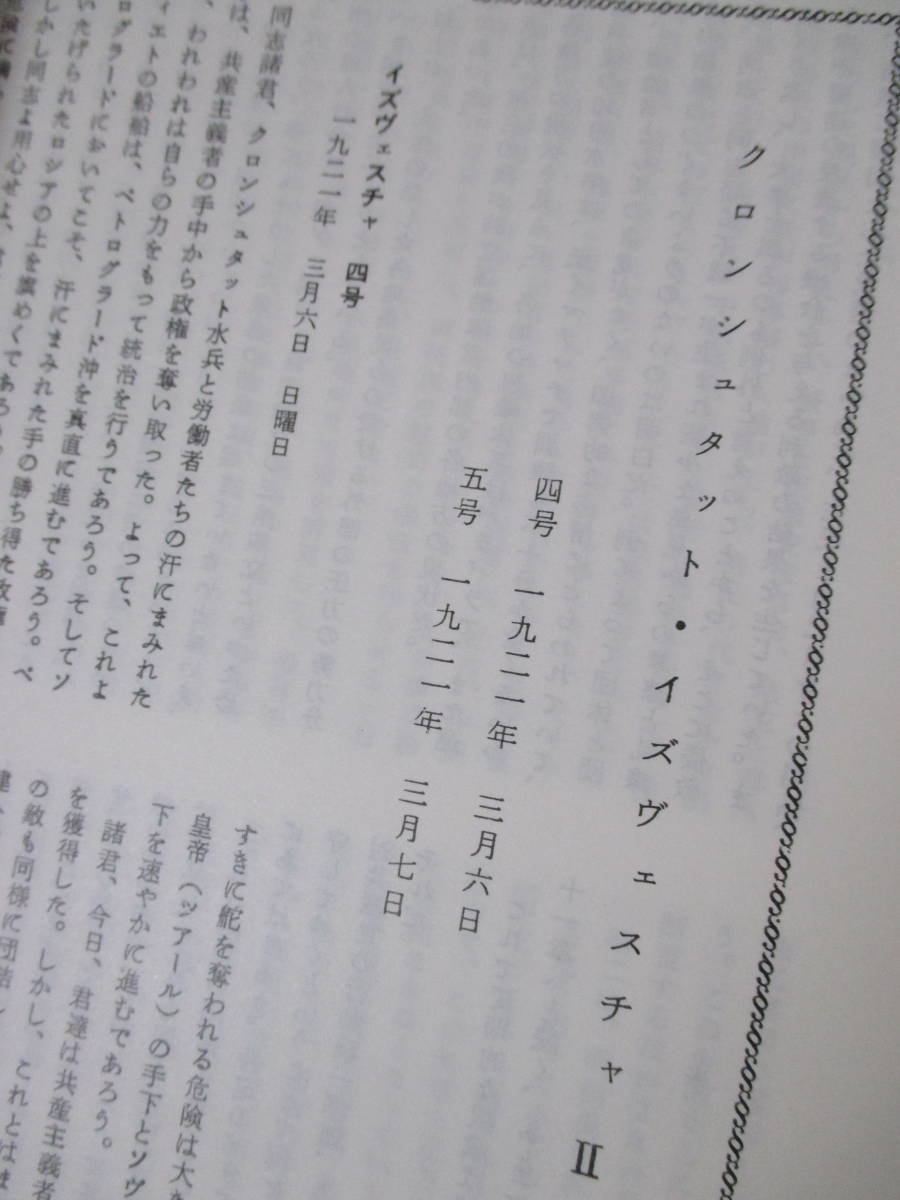 クロンシュタット・イズヴェスチャ Ⅱ
四号 一九二一年 三月六日
五号 一九二一年 三月七日
イズヴェスチャ 四号
一九二一年 三月六日 日曜日
同志諸君、クロンシュタット水兵と労働者たちの汗にまみれた
は、共産主義者の手中から政権を奪い取った。よって、これよ
、われわれは自らの力をもって統治を行うであろう。そしてソ
ィエトの船舶は、ペトログラード沖を真直に進むであろう。ペ
ログラードにおいてこそ、汗にまみれた手の勝ち得た政権
いたげられたロシアの上を
しかし同志よ用心せよ、
すきに舵を奪われる危険は大
皇帝（ツアール）の手下とソヴ
下を速やかに進むであろう。
諸君、今日、君達は共産主義者
を獲得した。しかし、これとは
の敵も同様に団結